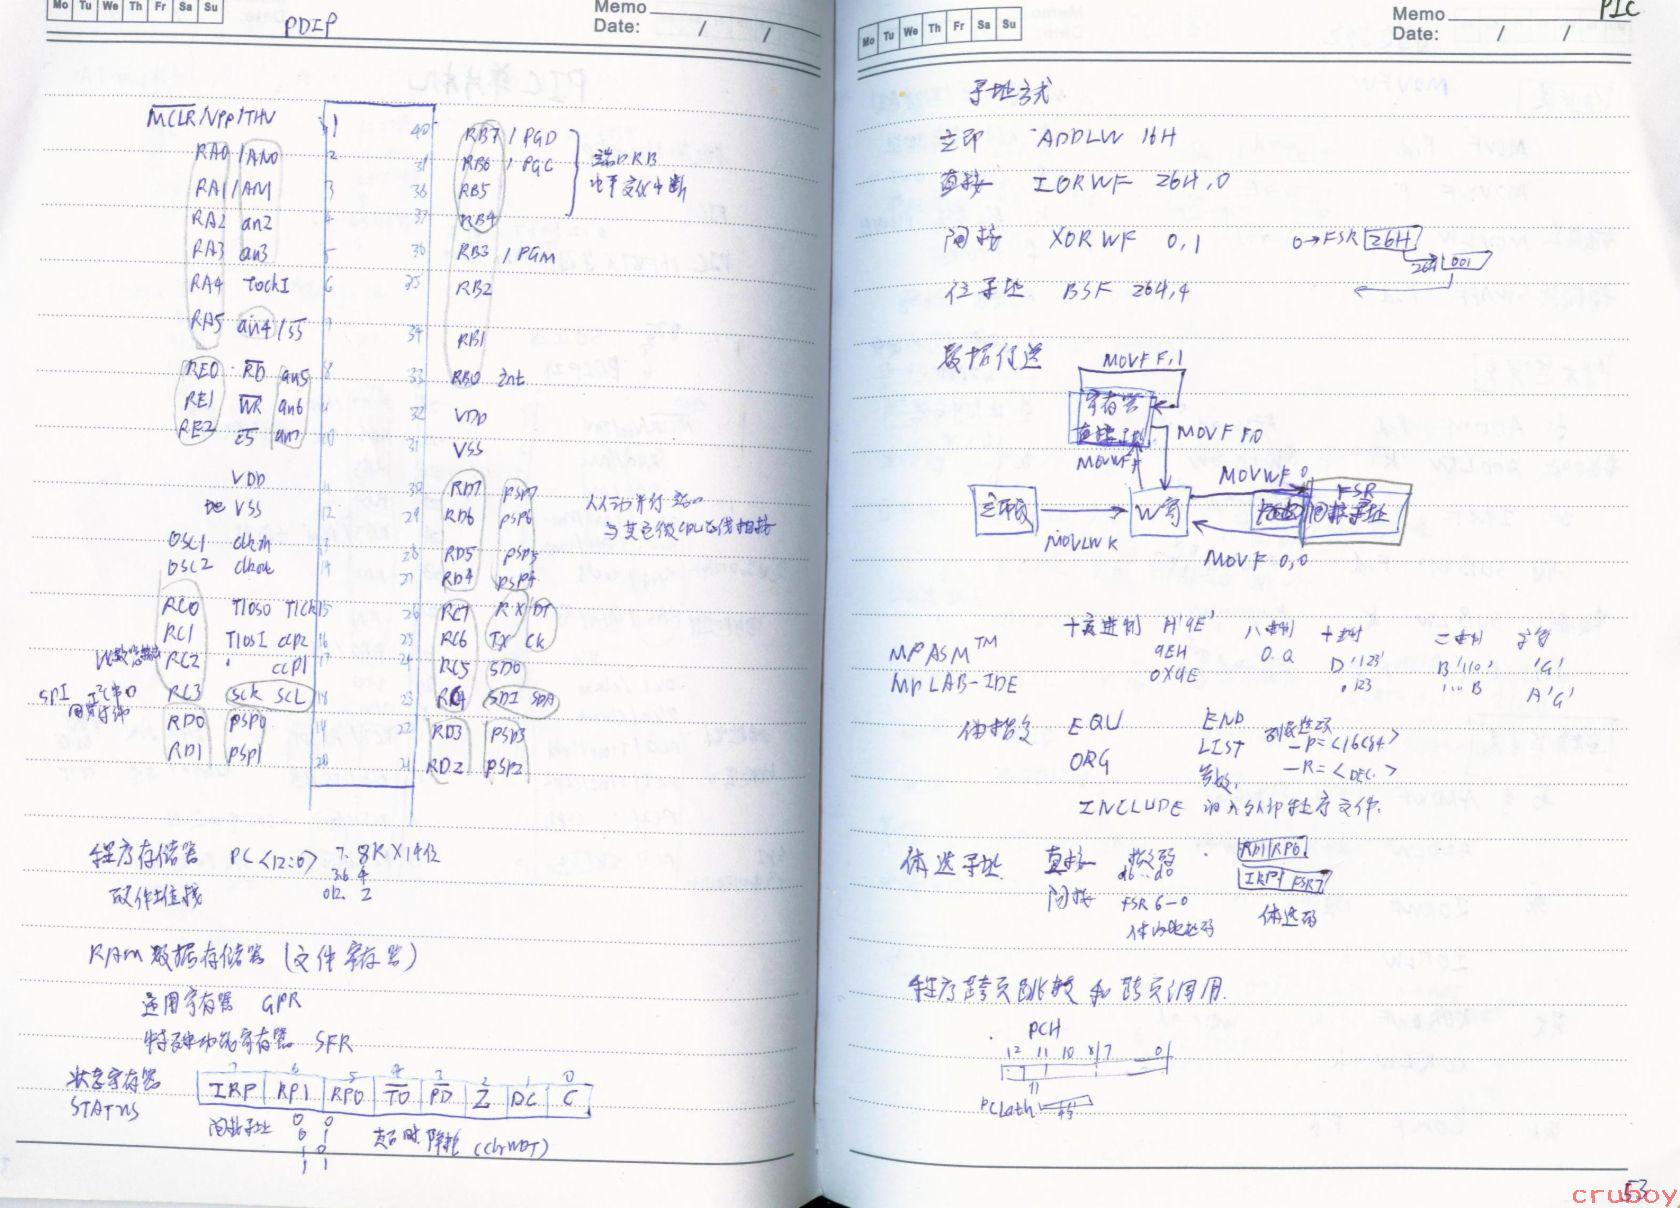 Mo Tu We Th Fr Sa Su
Memo
Date: / /
PDIP
MCLR/Vpp/THV 1
RA0/AN0 2
RA1/AN1 3
RA2 an2 4
RA3 an3 5
RA4 TockI 6
RA5 an4/SS 7
RE0 RD an5 8
RE1 WR an6 9
RE2 CS an7 10
VDD 11
地 VSS 12
OSC1 clkin 13
OSC2 clkout 14
RC0 T1oso T1ck 15
RC1 T1osI ccp2 16
RC2 ccp1 17
SPI I²C
RC3 sck SCL 18
RD0 PSP0 19
RD1 PSP1 20
40 RB7/PGD
RB6/PGC
RB5
37 RB4
端口RB
电平变化中断
36 RB3/PGM
35 RB2
34 RB1
33 RB0 Int
32 VDD
31 VSS
30 RD7 PSP7
29 RD6 PSP6
28 RD5 PSP5
27 RD4 PSP4
从动并行端口
与其它微CPU总线相接
26 RC7 RX DT
25 RC6 TX CK
24 RC5 SDO
23 RC4 SDI SDA
22 RD3 PSP3
21 RD2 PSP2
程序存储器 PC<12:0> 7. 8K×14位
硬件堆栈
RAM 数据存储器 (文件寄存器)
通用寄存器 GPR
特殊功能寄存器 SFR
状态寄存器
STATUS
7 6 5 4 3 2 1 0
IRP RP1 RP0 TO PD Z DC C
间接寻址
0 0
0 1
1 0
1 1
超时 降耗 (clrWDT)
Mo Tu We Th Fr Sa Su
Memo
Date: / /
PIC
寻址方式
立即 ADDLW 16H
直接 IORWF 26H,0
间接 XORWF 0,1 0→FSR 26H
26H 001
位寻址 BSF 26H,4
数据传送
MOVF F,1
寄存器
直接寻址
MOVF F,0
MOVWF F
立即数
MOVLW K
W寄
MOVWF 0
FSR
间接寻址
MOVF 0,0
MPASM™
MPLAB-IDE
十六进制 H'9E'
9EH
0X9E
八进制
O. Q
十进制
D'123'
.123
二进制
B'110.'
1...B
字符
'G'
A'G'
伪指令 EQU
ORG
END
LIST 列表选项
-P=<16C54>
-R=<DEC.>
INCLUDE 调入外部程序文件.
体选寻址 直接 指令码
d6...d0
RP1 RP0
间接 FSR 6-0
体内地址码
IRP+FSR7
体选码
程序跨页跳转和跨页调用.
PCH
12 11 10 8 7 0
PCLath
53
cruboy